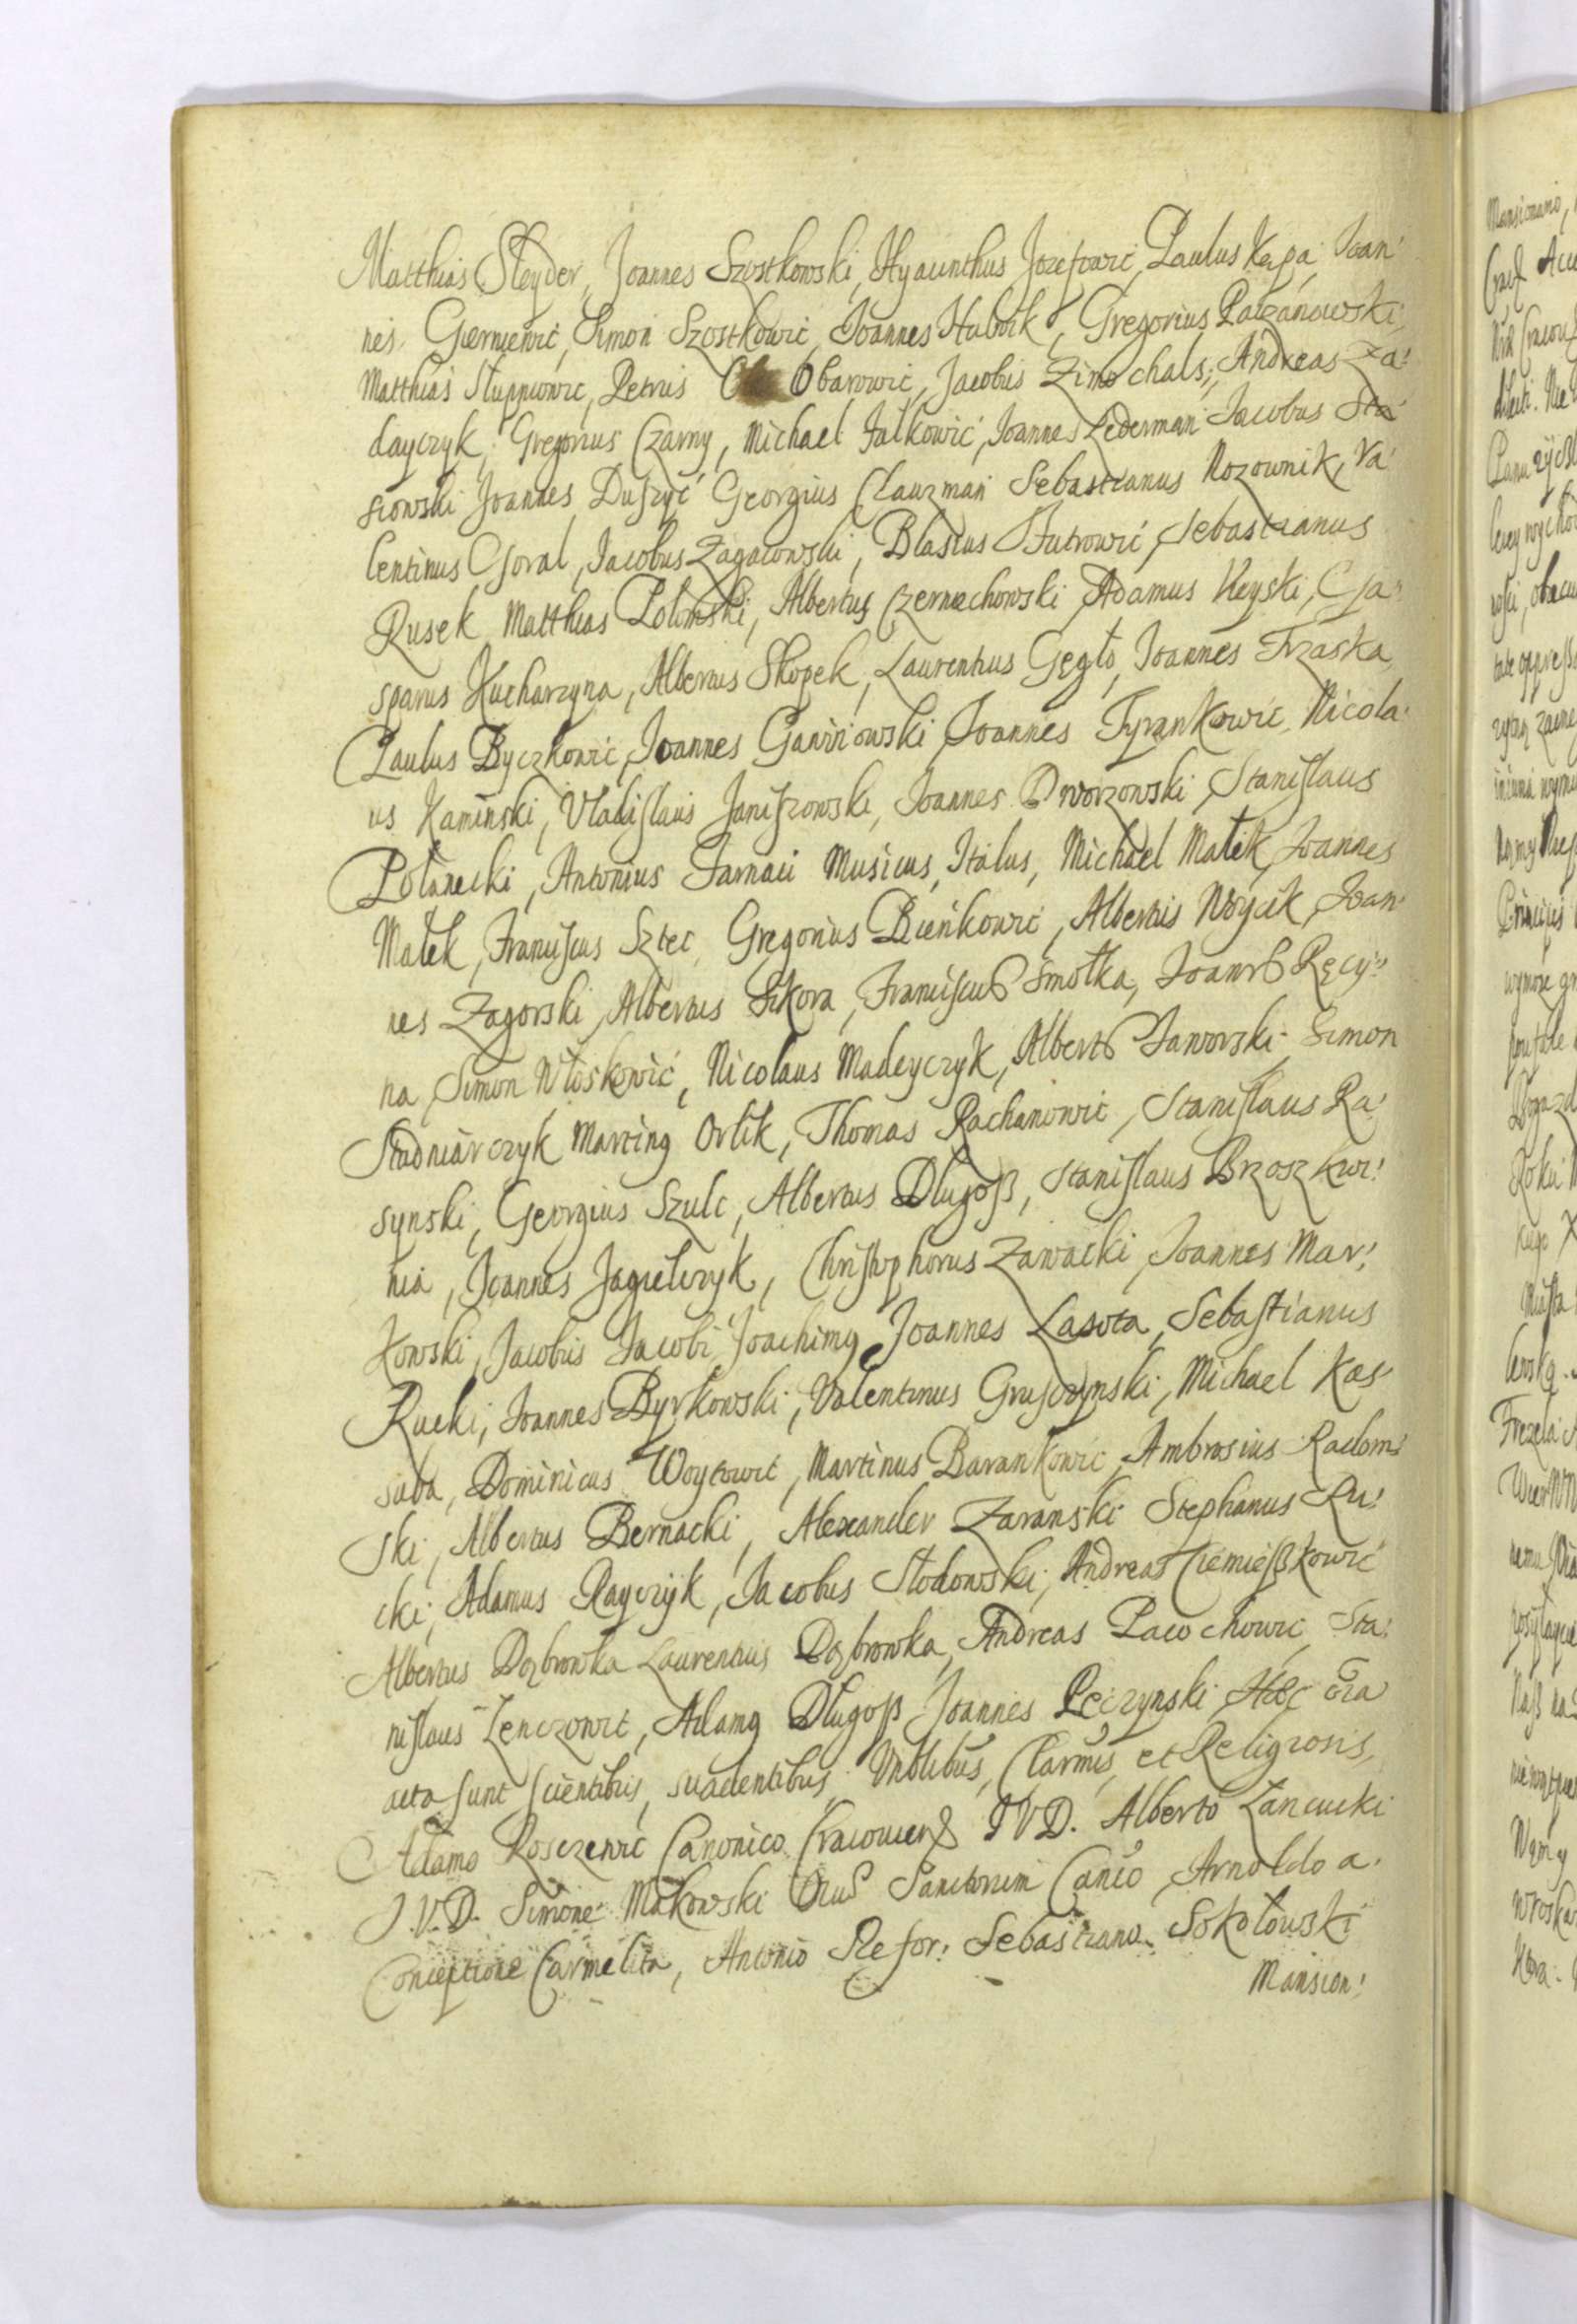 Matthias Sleyder, Joannes Szostkowski, Hyacinthus Jozefowic, Paulus Kapa, Joan:
nes Gierniewic, Simon Szostkowic, Joannes Hubnik, Gregorius Palzanowski,
Matthias Stupniowic, Petrus Obarowic, Jacobus Zimochals, Andreas Za:
dayczyk, Gregorius Czarny, Michael Falkowic, Joannes Lederman Jacobus Sta
siowski Joannes Duszyc Georgius Clauzman Sebastianus Nozownik, Va:
lentinus Goral, Jacobus Zagacowski, Blasius Futrowic, Sebastianus
Rusek Matthias Polomski, Albertus Czerniechowski Adamus Keyski, Ga:
sparus Kucharzyna, Albertus Skopek, Laurentius Gęgło, Joannes Trzaska
Paulus Byczkowic, Joannes Gawinowski Joannes Tyrankowic, Nicola:
us Kaminski, Vladislaus Janiszowski, Joannes Dworzowski Stanislaus
Polanecki, Antonius Farnaci Musicus, Italus, Michael Małek, Joannes
Małek, Franciscus Sztec, Gregorius Bieńkowic, Albertus Woycik, Joan:
nes Zagorski, Albertus Sikora, Franciscus Smołka, Joannes Ręcy:
na, Simon Włoskowic, Nicolaus Madeyczyk, Albertus Jaworski Simon
Studniarczyk Martinus Orlik, Thomas Rachanowic, Stanislaus Ra:
synski, Georgius Szulc, Albertus Dlugoß, Stanislaus Brzoszkwi:
nia, Joannes Jagielczyk, Christophorus Zawacki, Joannes Mar:
kowski, Jacobus Jacobi Joachimus, Joannes Lasota, Sebastianus
Rucki, Joannes Byrkowski, Valentinus Grusczynski, Michael Kas:
suba, Dominicus Woytowic, Martinus Barankowic, Ambrosius Radom:
ski, Albertus Bernacki, Alexander Zaranski Stephanus Ru:
cki, Adamus Rayczyk, Jacobus Stodowski, Andreas Ciemießkowic
Albertus Dąbrowka Laurentius Dąbrowka, Andreas Pacochowic, Sta:
nislaus Zenczowic, Adamus Dlugoß Joannes Pęczynski Hæc oĩa
acta sunt scientibus, suadentibus, Vnblibus, Clarmis, et Religiosis,
Adamo Rosczewic Canonico Cracouien̄ I V D. Alberto Lancucki
J.V.D. Simone Makowski Oīus Sanctorum Canco, Arnoldo a
Conceptione Carmelita, Antonio Refor: Sebastiano Sokołowski
Mansion: